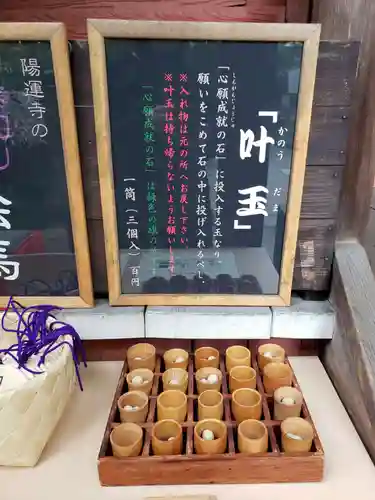 「叶玉」
かのう だま
「心願成就の石」に投入する玉なり。
しんがんじょうじゅ
願いをこめて石の中に投げ入れるべし。
※入れ物は元の所へお戻し下さい
※叶玉は持ち帰らないようお願いします。
「心願成就の石」は緑色の旗の
一筒（三個入）百円
陽運寺の
絵馬